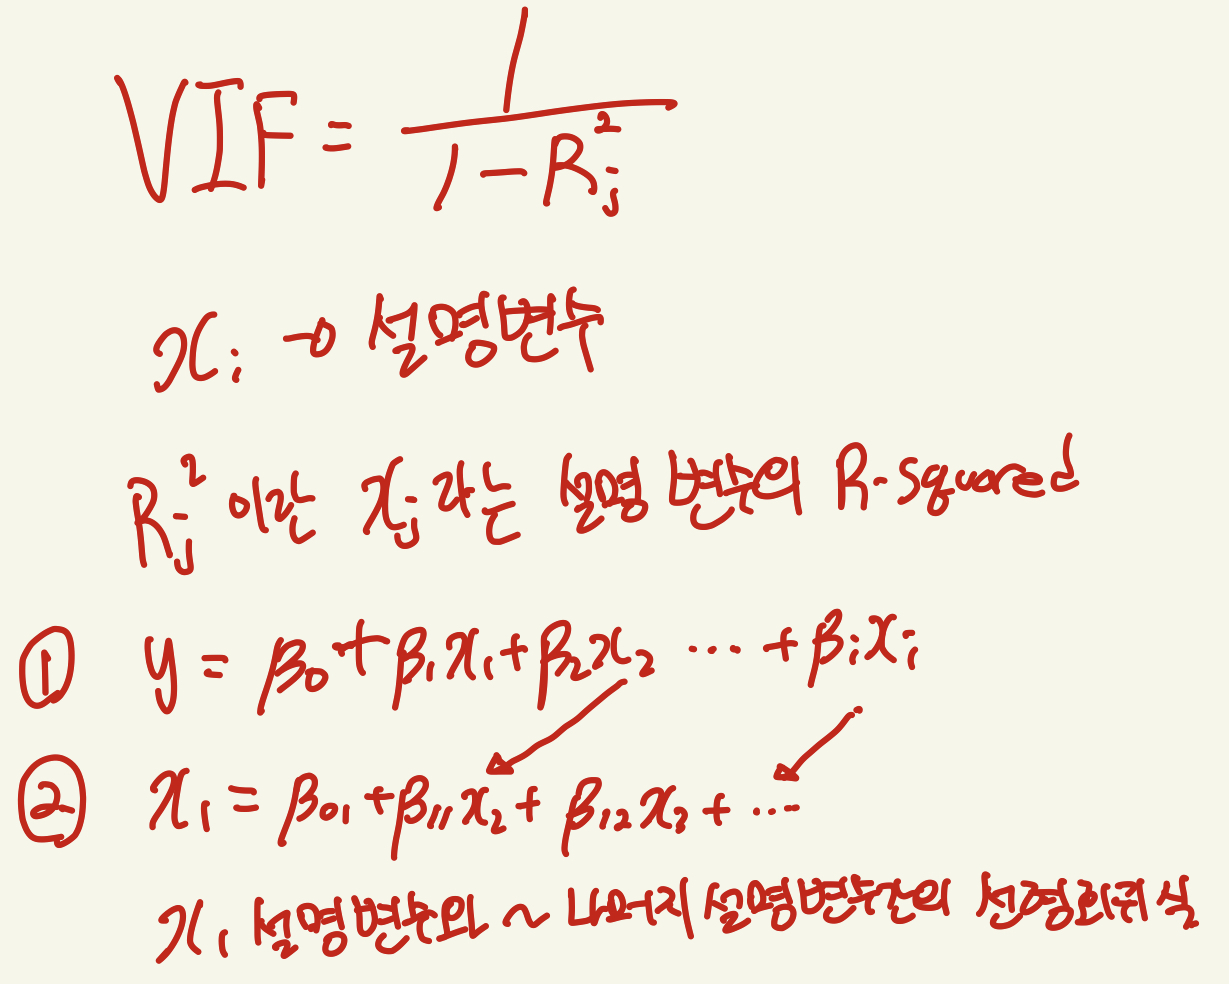 VIF = 1 / (1 - R_j^2)
x_i → 설명변수
R_j^2 이라는 x_j 라는 설명 변수의 R-squared
① y = β_0 + β_1 x_1 + β_2 x_2 ... + β_i x_i
② x_1 = β_01 + β_11 x_2 + β_12 x_3 + ...
x_1 설명변수와 ~ 나머지 설명변수간의 선형회귀식